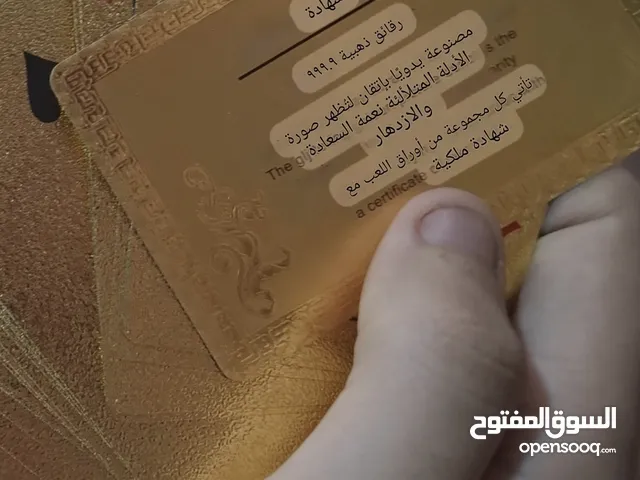 شهادة
رقائق ذهبية ٩٩٩.٩
مصنوعة يدويًا بإتقان لتظهر صورة
الأدلة المتلألئة نعمة السعادة
والازدهار
تأتي كل مجموعة من أوراق اللعب مع
شهادة ملكية
s the
The
a certificate
السوق المفتوح
opensooq.com